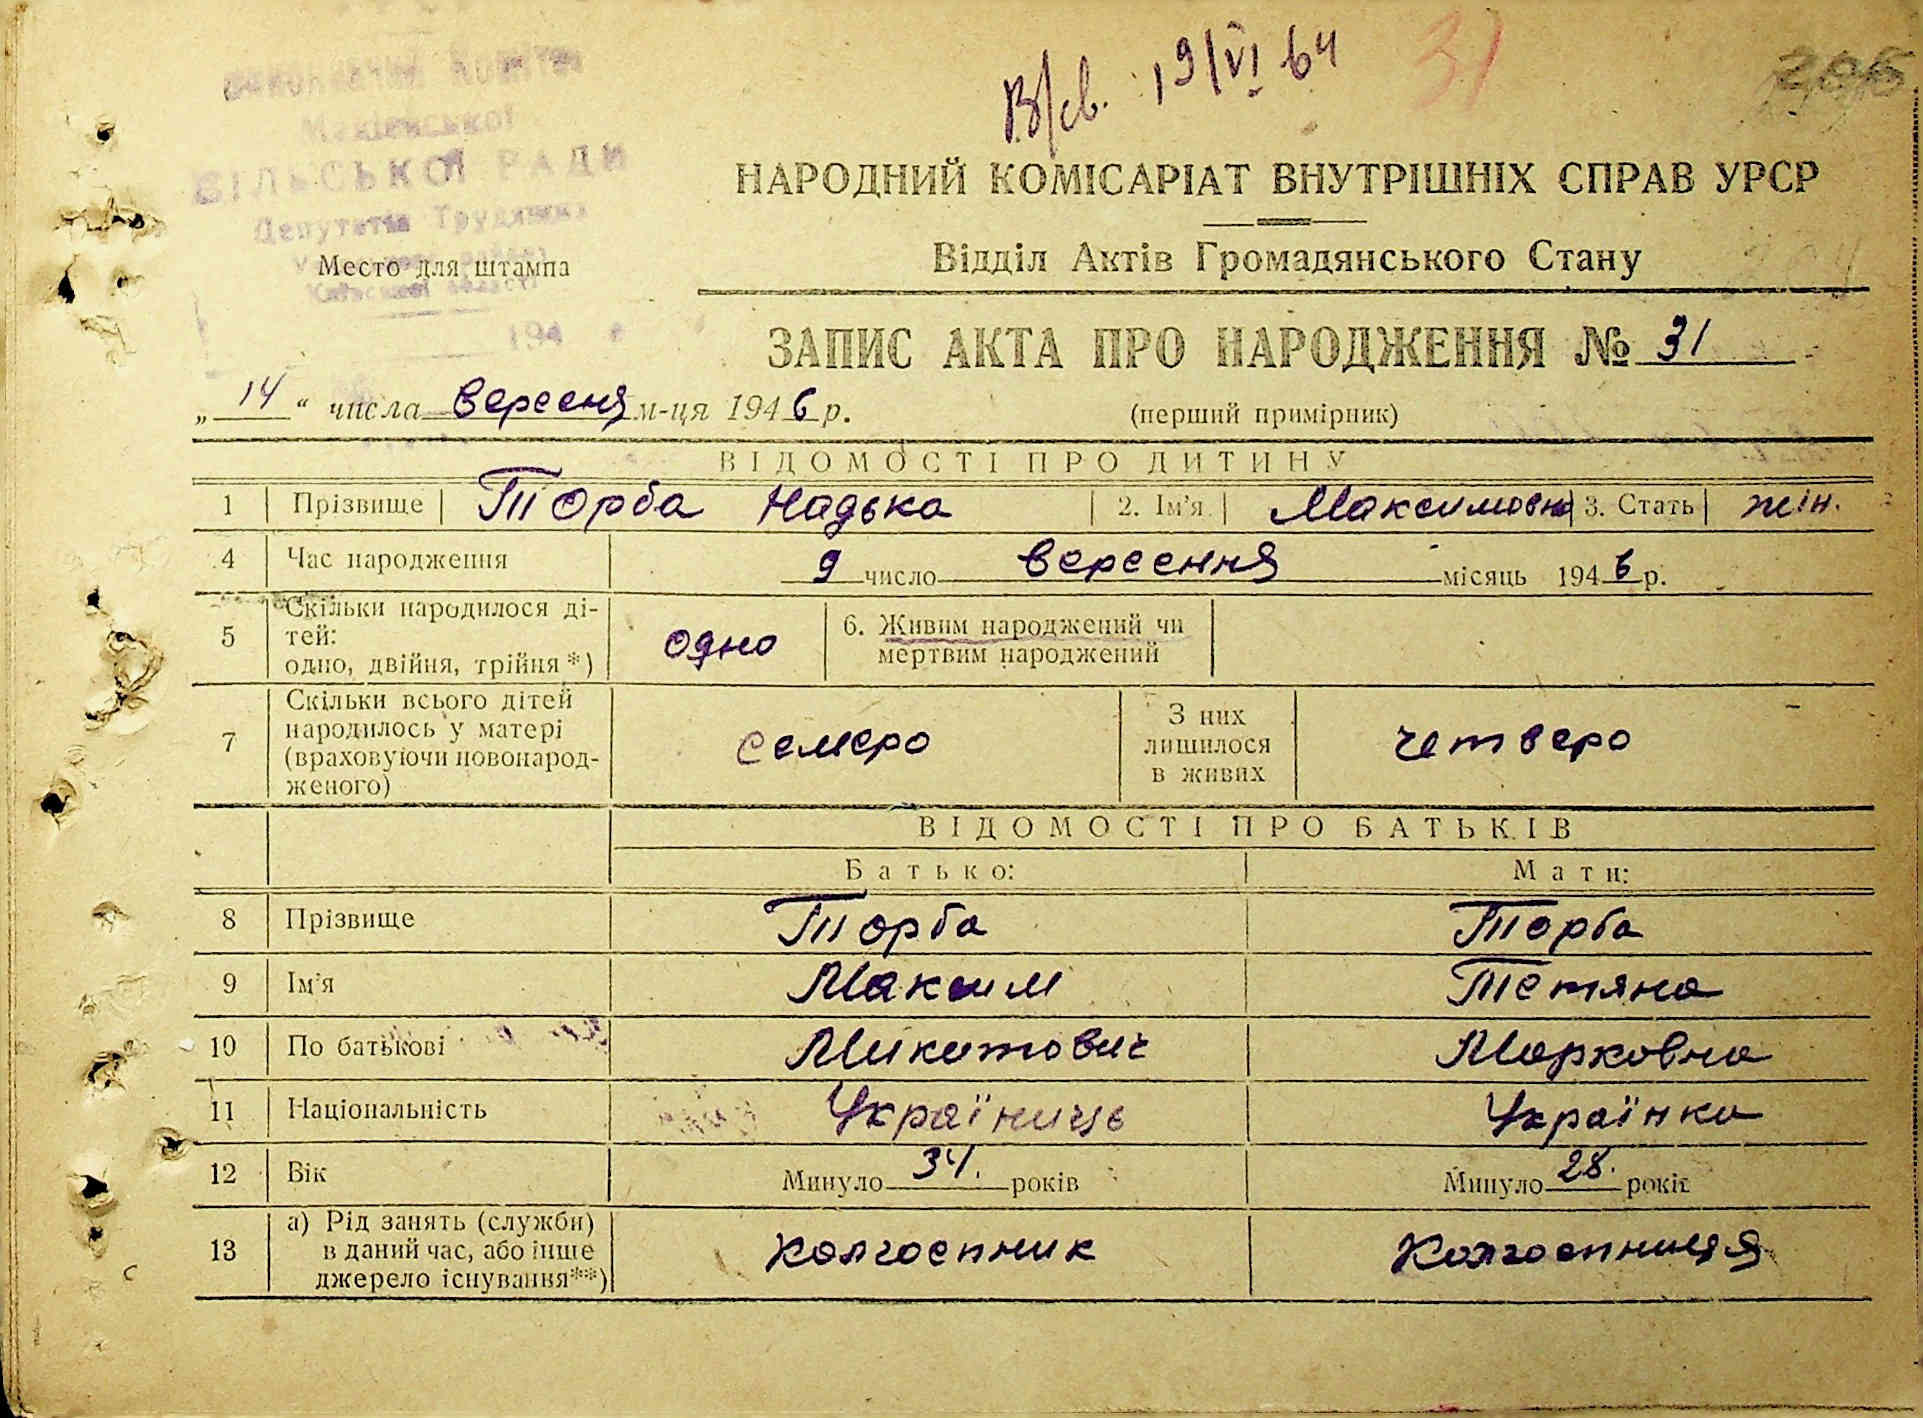 В/св. 19/VI 64
31
206
Виконавчий комітет
Макіївської
СІЛЬСЬКОЇ РАДИ
Депутатів Трудящих
Київської області
194 е
НАРОДНИЙ КОМІСАРІАТ ВНУТРІШНІХ СПРАВ УРСР
Відділ Актів Громадянського Стану
Место для штампа
ЗАПИС АКТА ПРО НАРОДЖЕННЯ № 31
„ 14 “ числа вересня м-ця 1946 р. (перший примірник)
ВІДОМОСТІ ПРО ДИТИНУ
1 Прізвище Торба Надька 2. Ім'я Максимовна 3. Стать жін.
4 Час народження 9 число вересння місяць 1946 р.
5 Скільки народилося ді-
тей:
одно, двійня, трійня *) одно 6. Живим народжений чи
мертвим народжений
7 Скільки всього дітей
народилось у матері
(враховуючи новонарод-
женого) семеро З них
лишилося
в живих четверо
ВІДОМОСТІ ПРО БАТЬКІВ
Батько: Мати:
8 Прізвище Торба Торба
9 Ім'я Максим Тетяна
10 По батькові Микитович Марковна
11 Національність Україниць Українка
12 Вік Минуло 34. років Минуло 28. років
13 а) Рід занять (служби)
в даний час, або інше
джерело існування**) колгоспник колгоспниця